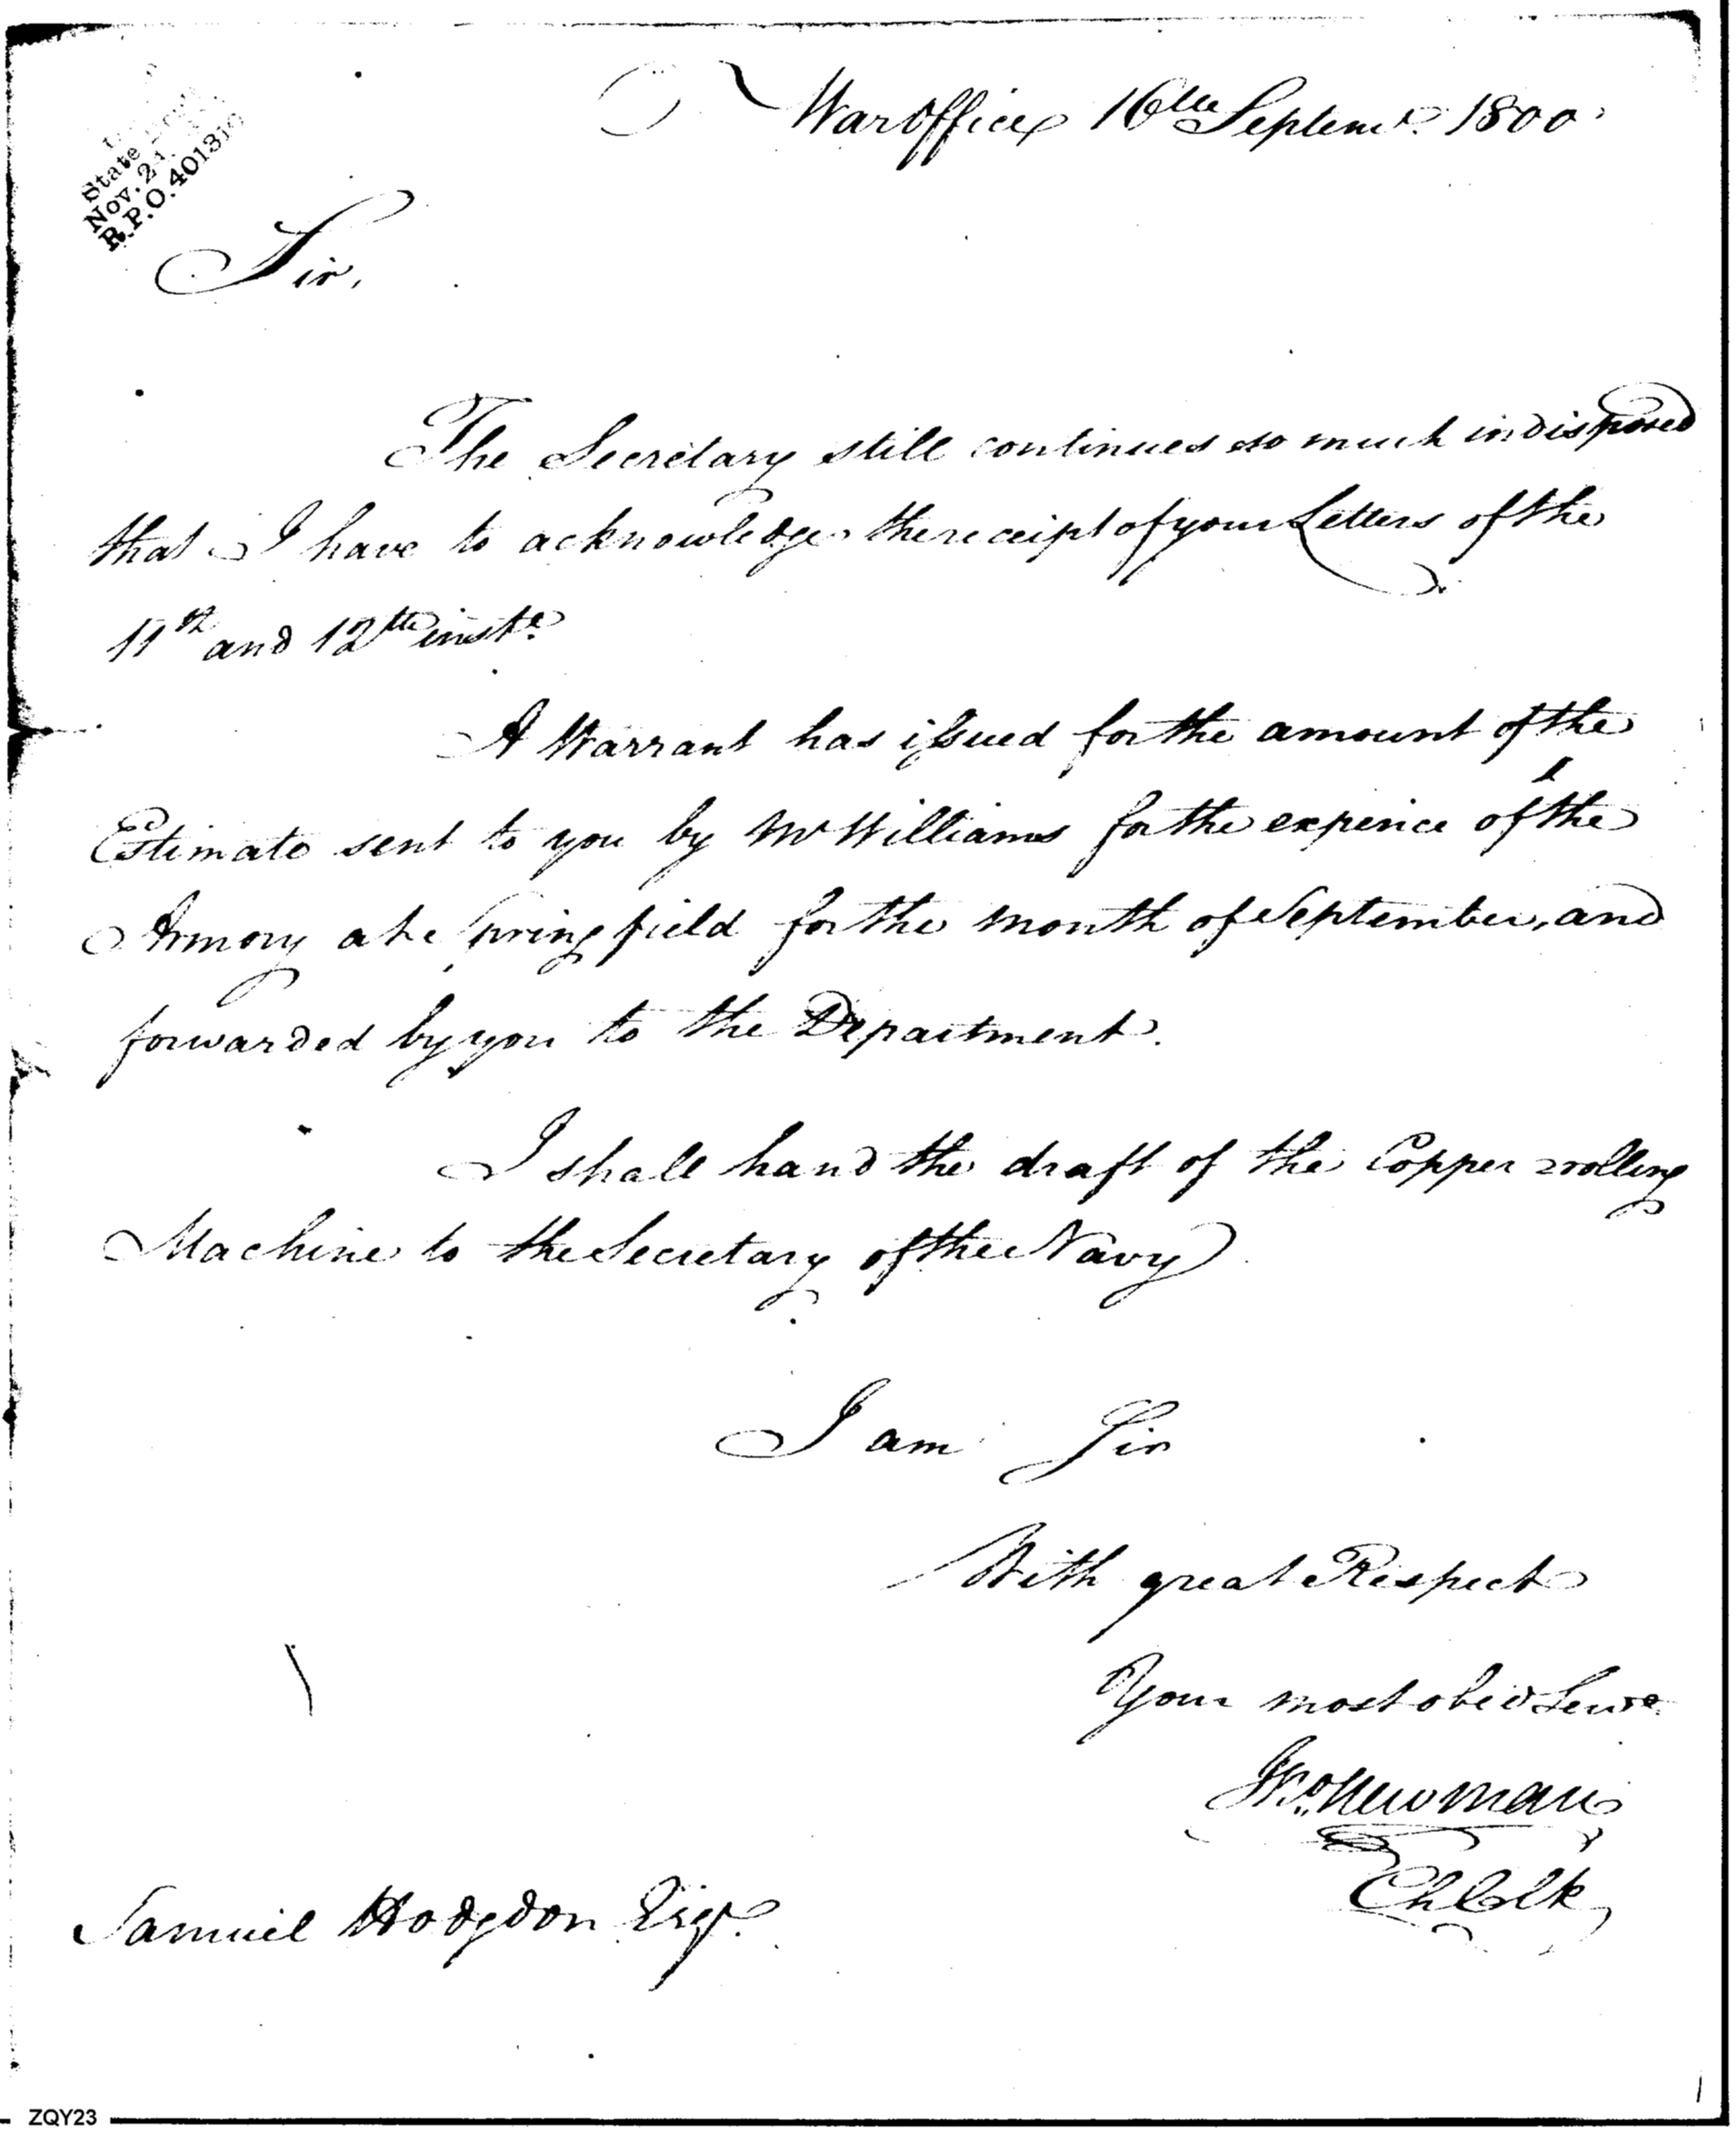 War Office 16th Septemr. 1800
State
Nov. 2
R.P.O. 401310
Sir,
The Secretary still continues so much indisposed
that I have to acknowledge the receipt of your Letters of the
11th and 12th inst.
A Warrant has issued for the amount of the
Estimate sent to you by Mr Williams for the expence of the
Armory at Springfield for the month of September, and
forwarded by you to the Department.
I shall hand the draft of the Copper rolling
Machine to the Secretary of the Navy
I am Sir
With great Respect
Your most obed Serve.
Newman
Ch Clk
Samuel Hodgdon Esqr.
ZQY23